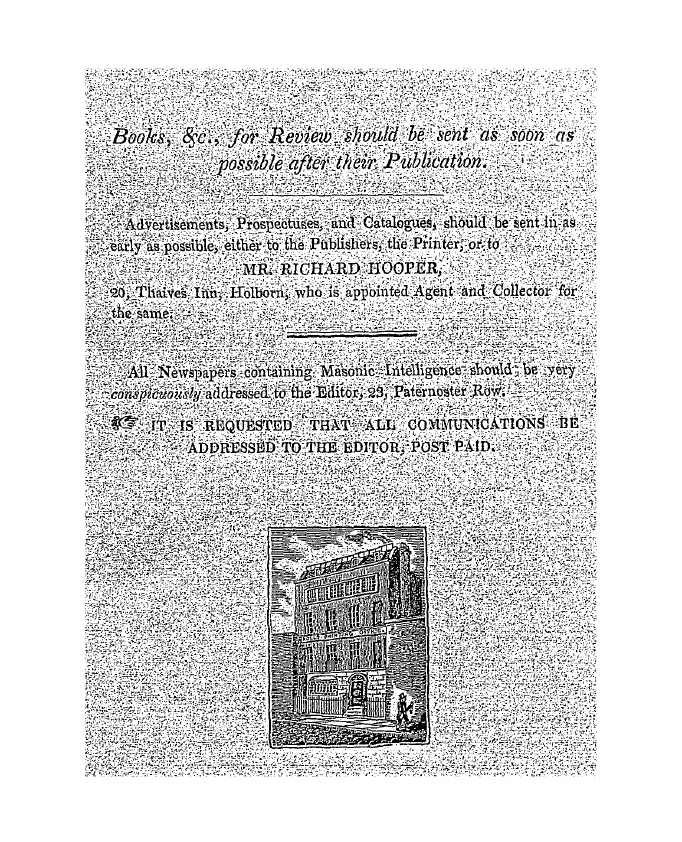 Books, &c., for Review should be sent as soon as
possible after their Publication.
Advertisements, Prospectuses, and Catalogues, should be sent in as
early as possible, either to the Publishers, the Printer, or to
MR. RICHARD HOOPER,
20, Thaives Inn, Holborn, who is appointed Agent and Collector for
the same.
All Newspapers containing Masonic Intelligence should be very
conspicuously addressed to the Editor, 23, Paternoster Row.
☞ IT IS REQUESTED THAT ALL COMMUNICATIONS BE
ADDRESSED TO THE EDITOR, POST PAID.